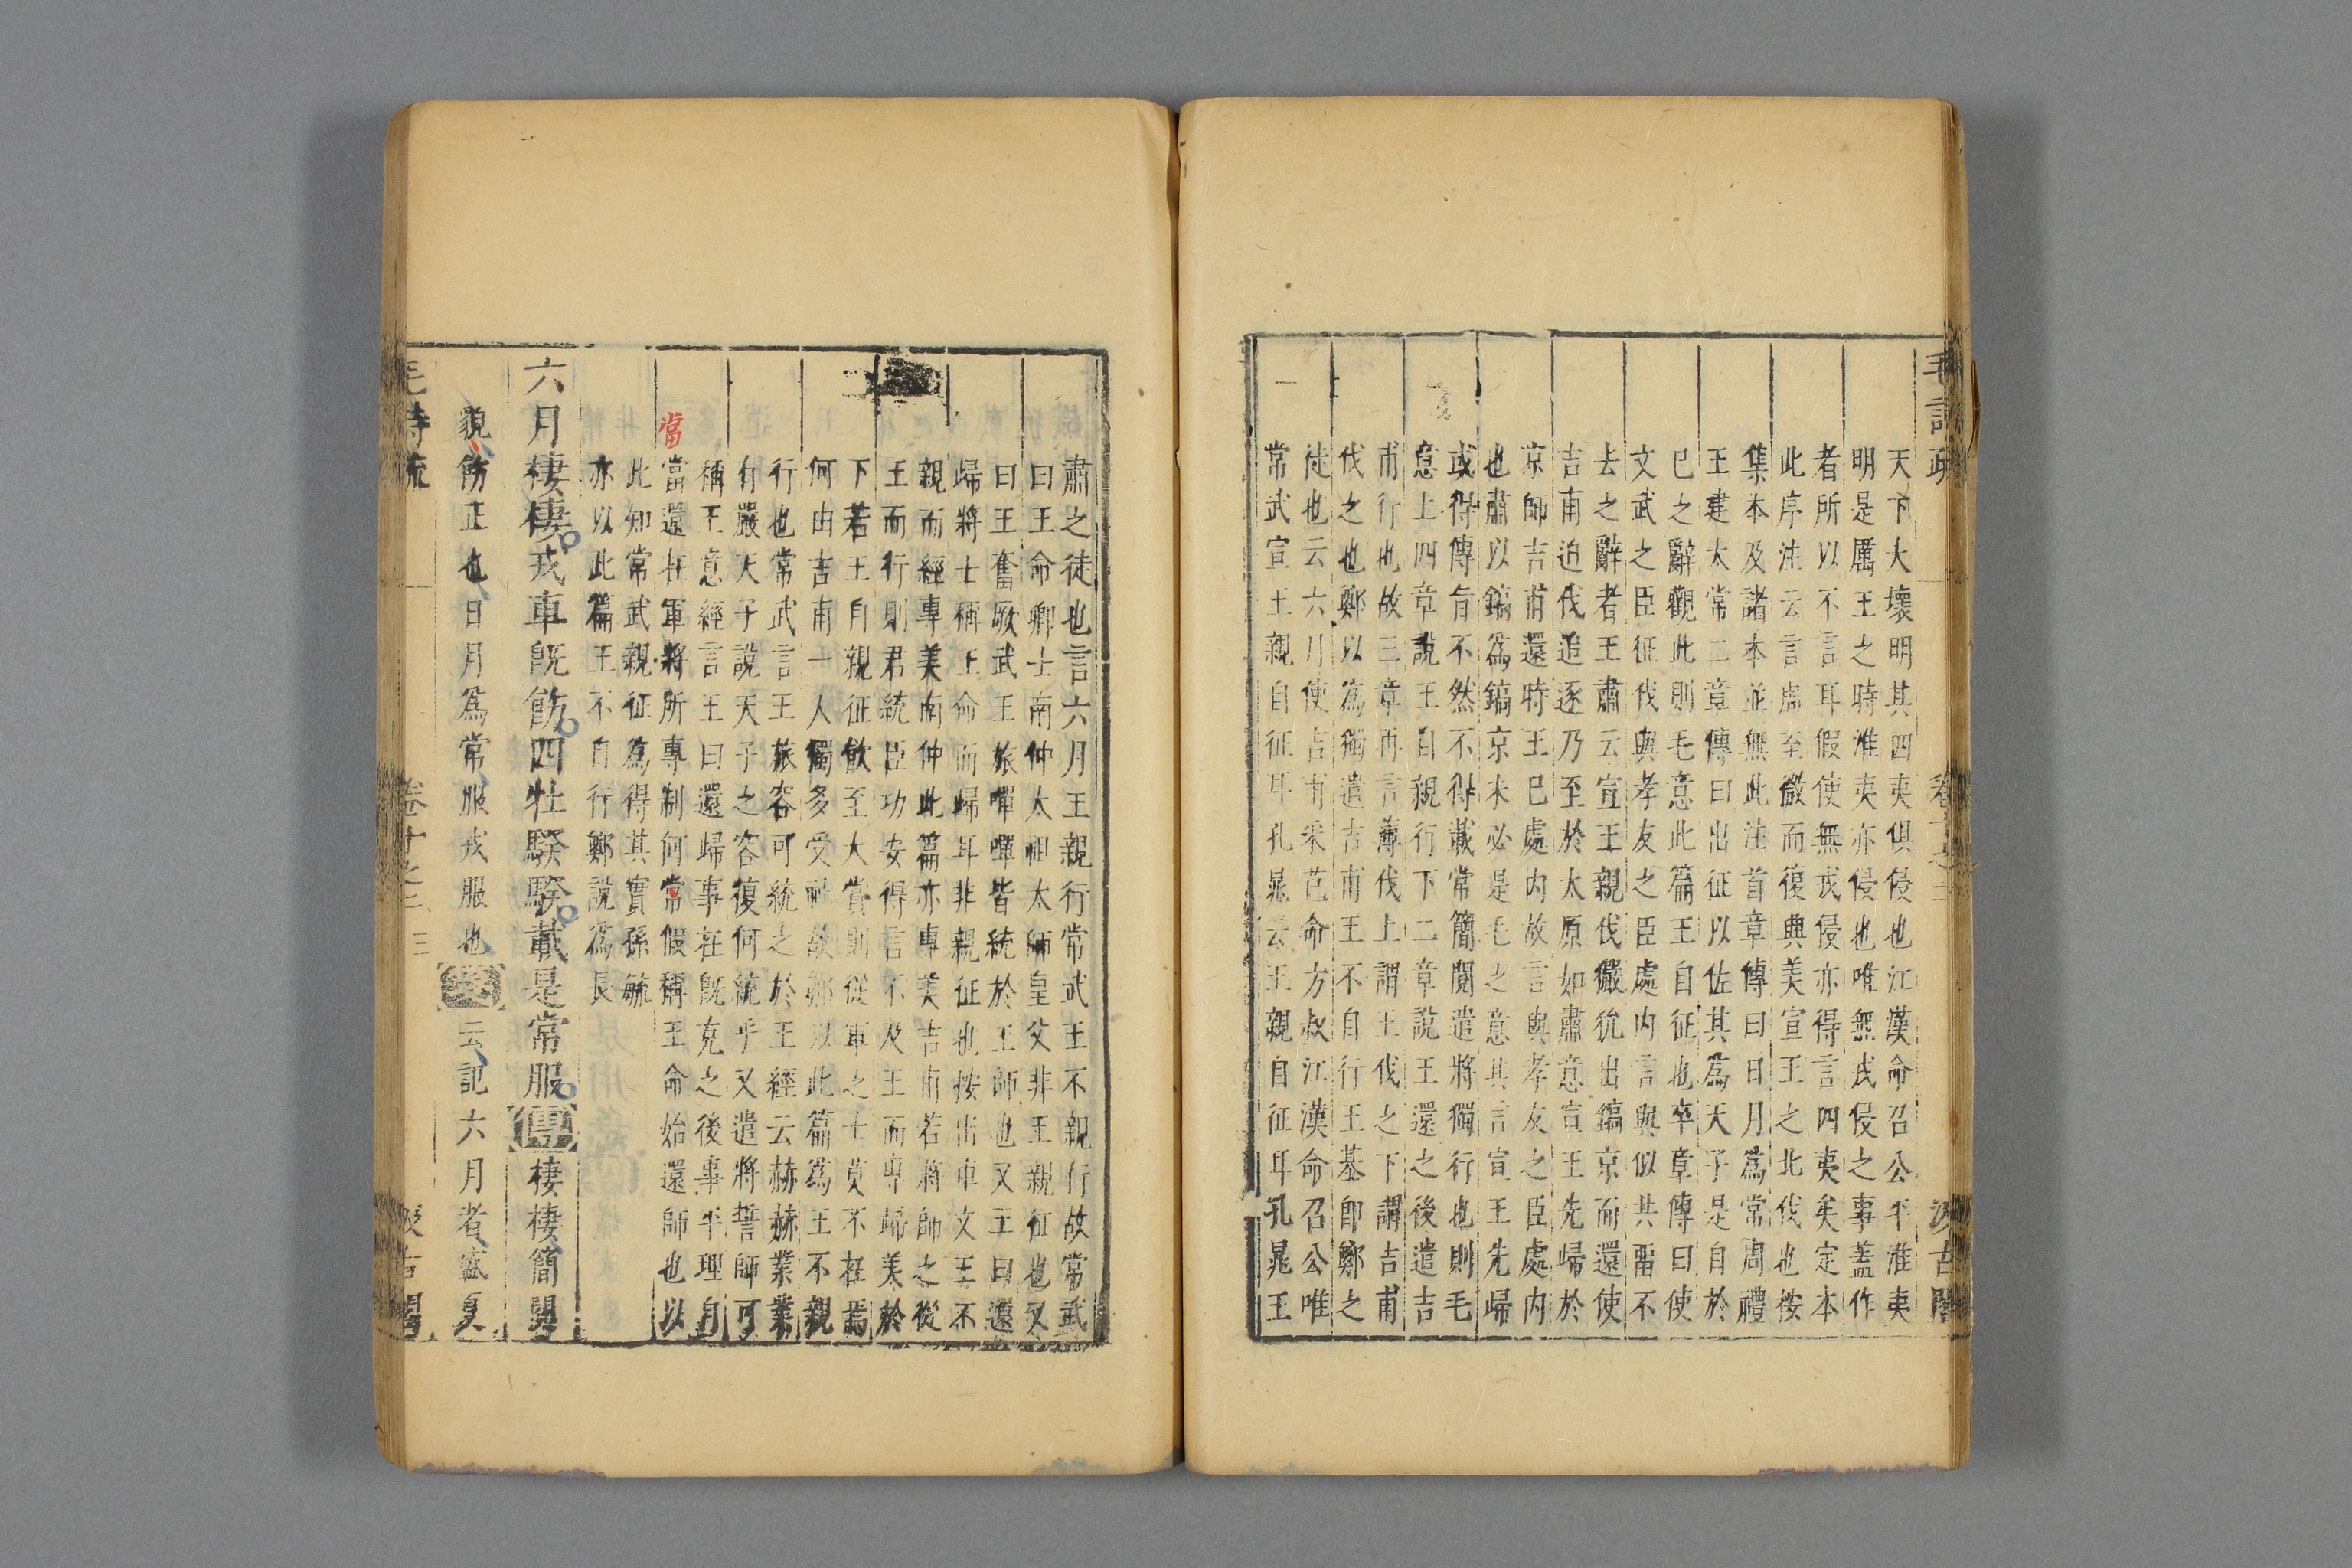 毛詩疏
卷十之二
汲古閣
天下大壞明其四夷俱侵也江漢命召公平淮夷
明是厲王之時淮夷亦侵也唯無戎侵之事蓋作
者所以不言耳假使無戎侵亦得言四夷矣定本
此序注云言周至微而復典美宣王之北伐也按
集本及諸本並無此注首章傳曰日月為常周禮
王建大常二章傳曰出征以佐其為天子是自於
已之辭觀此則毛意此篇王自征也卒章傳曰使
文武之臣征伐與孝友之臣處内言與似共畱不
去之辭者王肅云宣王親伐玁狁出鎬京而還使
吉甫迫伐追逐乃至於太原如肅意宣王先歸於
京師吉甫還時王巳處内故言與孝友之臣處内
也肅以鎬為鎬京未必是毛之意其言宣王先歸
或得傳旨不然不得載常簡閱遣將獨行也則毛
意上四章說王自親行下二章說王還之後遣吉
甫行也故三章再言薄伐上謂王伐之下謂吉甫
伐之也鄭以為獨遣吉甫王不自行王基即鄭之
徒也云六月使吉甫采芑命方叔江漢命召公唯
常武宣王親自征耳孔晁云王親自征耳孔晁王
肅之徒也言六月王親行常武王不親行故常武
曰王命卿士南仲太祖太師皇父非王親征也又
曰王奮厥武王旅嘽嘽皆統於王師也又王曰還
歸將士稱王命而歸耳非親征也按出車文王不
親而經專美南仲此篇亦專美吉甫若將師之從
王而行則君統臣功安得言不及王而專歸美於
下若王自親征飲至大賞則從軍之士莫不在焉
何由吉甫一人獨多受祉故鄭以此篇為王不親
行也常武言王旅容可統之於王經云赫赫業業
有嚴天子說天子之容復何統乎又遣將誓師可
稱王意經言王曰還歸事在既克之後事平理自
當
當還在軍將所專制何常假稱王命始還師也以
此知常武親征為得其實孫毓
亦以此篇王不自行鄭說為長
六月棲棲戎車既飭四牡騤騤載是常服傳棲棲簡閱
貌飭正也日月為常服戎服也箋云記六月者盛夏
毛詩疏
卷十之二
三
汲古閣